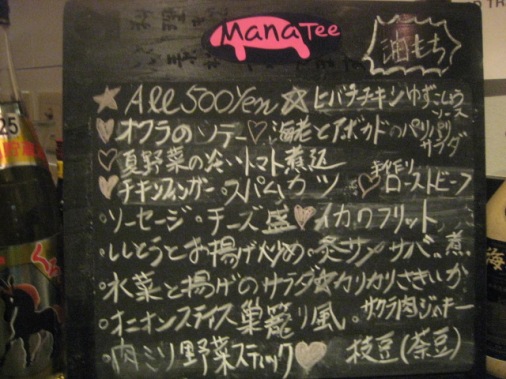 Manatee
油もち
★ All 500Yen ☆ ヒバチチキンゆずこしょうソース
♥オクラのソテー♡海老とアボカドのパリパリサラダ
♡夏野菜の炎いトマト煮込
♥チキンフィンガー・スパムカツ ♡手作りローストビーフ
・ソーセージ・チーズ盛♥イカのフリット
・ししとうとお揚げ炒め・炙サバ・サバ煮
・水菜と揚げのサラダ☆カリカリさきいか
・オニオンスライス巣篭り風・サクラ肉ジャーキー
・肉ミソ野菜スティック♥ 枝豆(茶豆)
25
梅